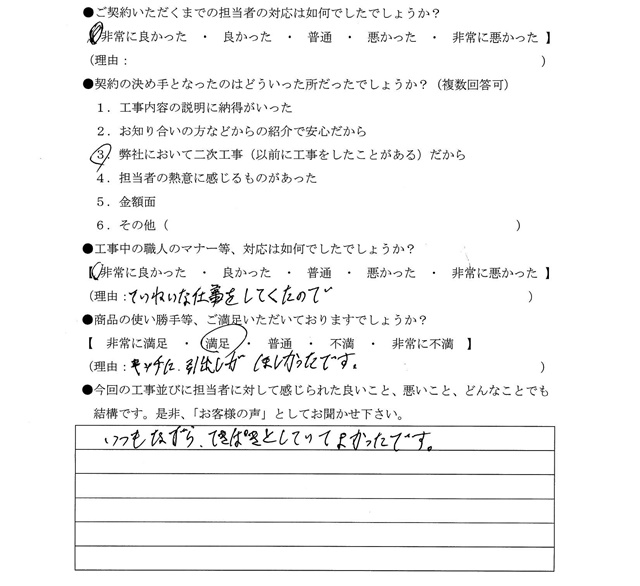 ●ご契約いただくまでの担当者の対応は如何でしたでしょうか？
【非常に良かった ・ 良かった ・ 普通 ・ 悪かった ・ 非常に悪かった 】
（理由： ）
●契約の決め手となったのはどういった所だったでしょうか？（複数回答可）
１．工事内容の説明に納得がいった
２．お知り合いの方などからの紹介で安心だから
３．弊社において二次工事（以前に工事をしたことがある）だから
４．担当者の熱意に感じるものがあった
５．金額面
６．その他（ ）
●工事中の職人のマナー等、対応は如何でしたでしょうか？
【 非常に良かった ・ 良かった ・ 普通 ・ 悪かった ・ 非常に悪かった 】
（理由：ていねいな仕事をしてくたので ）
●商品の使い勝手等、ご満足いただいておりますでしょうか？
【 非常に満足 ・ 満足 ・ 普通 ・ 不満 ・ 非常に不満 】
（理由： 引出しが ほしかったです。 ）
●今回の工事並びに担当者に対して感じられた良いこと、悪いこと、どんなことでも
結構です。是非、「お客様の声」としてお聞かせ下さい。
いつもながら、てきぱきとしていてよかったです。